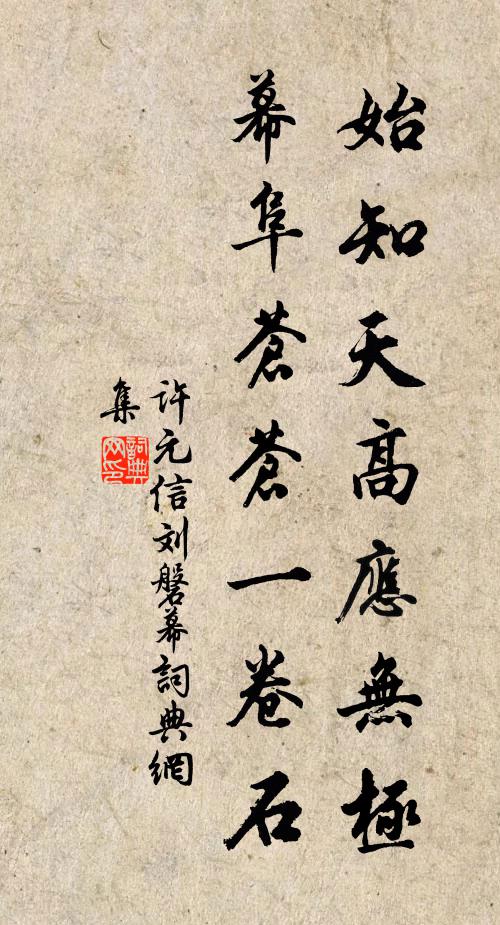 始知天高應無極
幕阜蒼蒼一卷石
許元信刘磐幕詞典網
集
詞典
网印